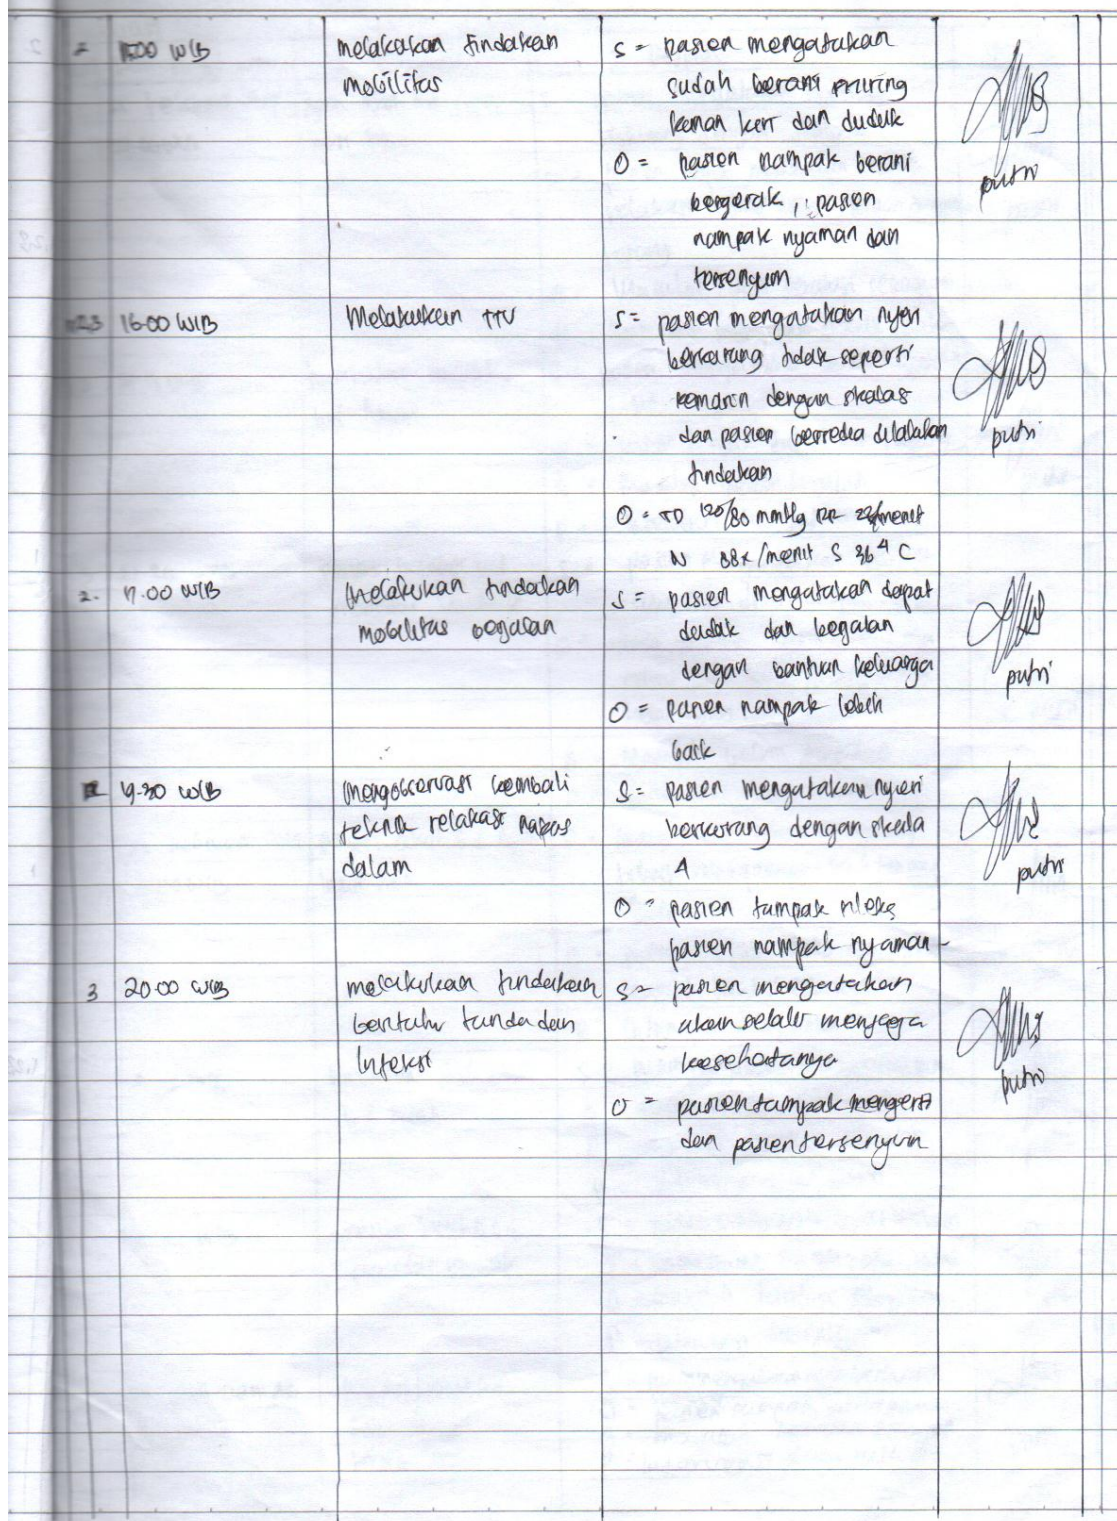 2 15.00 WIB melakukan tindakan mobilitas
S = pasien mengatakan
sudah berani miring
kanan kiri dan duduk
O = pasien nampak berani
bergerak, pasien
nampak nyaman dan
tersenyum
putri
16.00 WIB Melakukan TTV
S = pasien mengatakan nyeri
berkurang tidak seperti
kemarin dengan skala
dan pasien bersedia dilakukan
tindakan
O = TD 120/80 mmHg RR /menit
N 88x/menit S 36⁴ C
putri
2. 17.00 WIB melakukan tindakan
mobilitas berjalan
S = pasien mengatakan dapat
duduk dan berjalan
dengan bantuan keluarga
O = pasien nampak lebih
baik
putri
WIB mengobservasi kembali
teknik relaksasi napas
dalam
S = pasien mengatakan nyeri
berkurang dengan skala
4
O = pasien tampak rileks
pasien nampak nyaman
putri
3 20.00 WIB melakukan tindakan
tanda dan
infeksi
S = pasien mengatakan
akan selalu menjaga
kesehatanya
O = pasien tampak mengerti
dan pasien tersenyum
putri